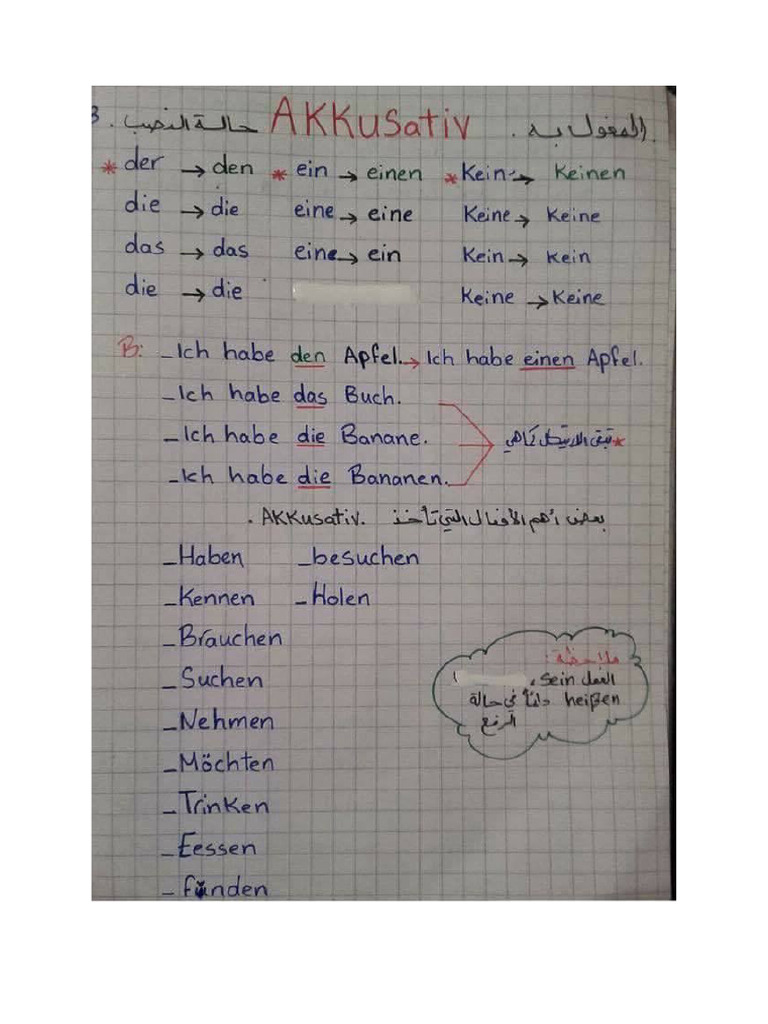 3. حالة النصب AKKusativ المفعول به.
* der → den * ein → einen * Kein → Keinen
die → die eine → eine Keine → Keine
das → das eine → ein Kein → Kein
die → die Keine → Keine
B: -Ich habe den Apfel. → Ich habe einen Apfel.
-Ich habe das Buch.
-Ich habe die Banane.
* تبقى الارتيكل كما هي
-Ich habe die Bananen.
بعض أهم الأفعال التي تأخذ AKKusativ.
-Haben -besuchen
-Kennen -Holen
-Brauchen
-Suchen
-Nehmen
-Möchten
-Trinken
-Eessen
-finden
ملاحظة:
الفعل sein،
heißen دائماً في حالة
الرفع